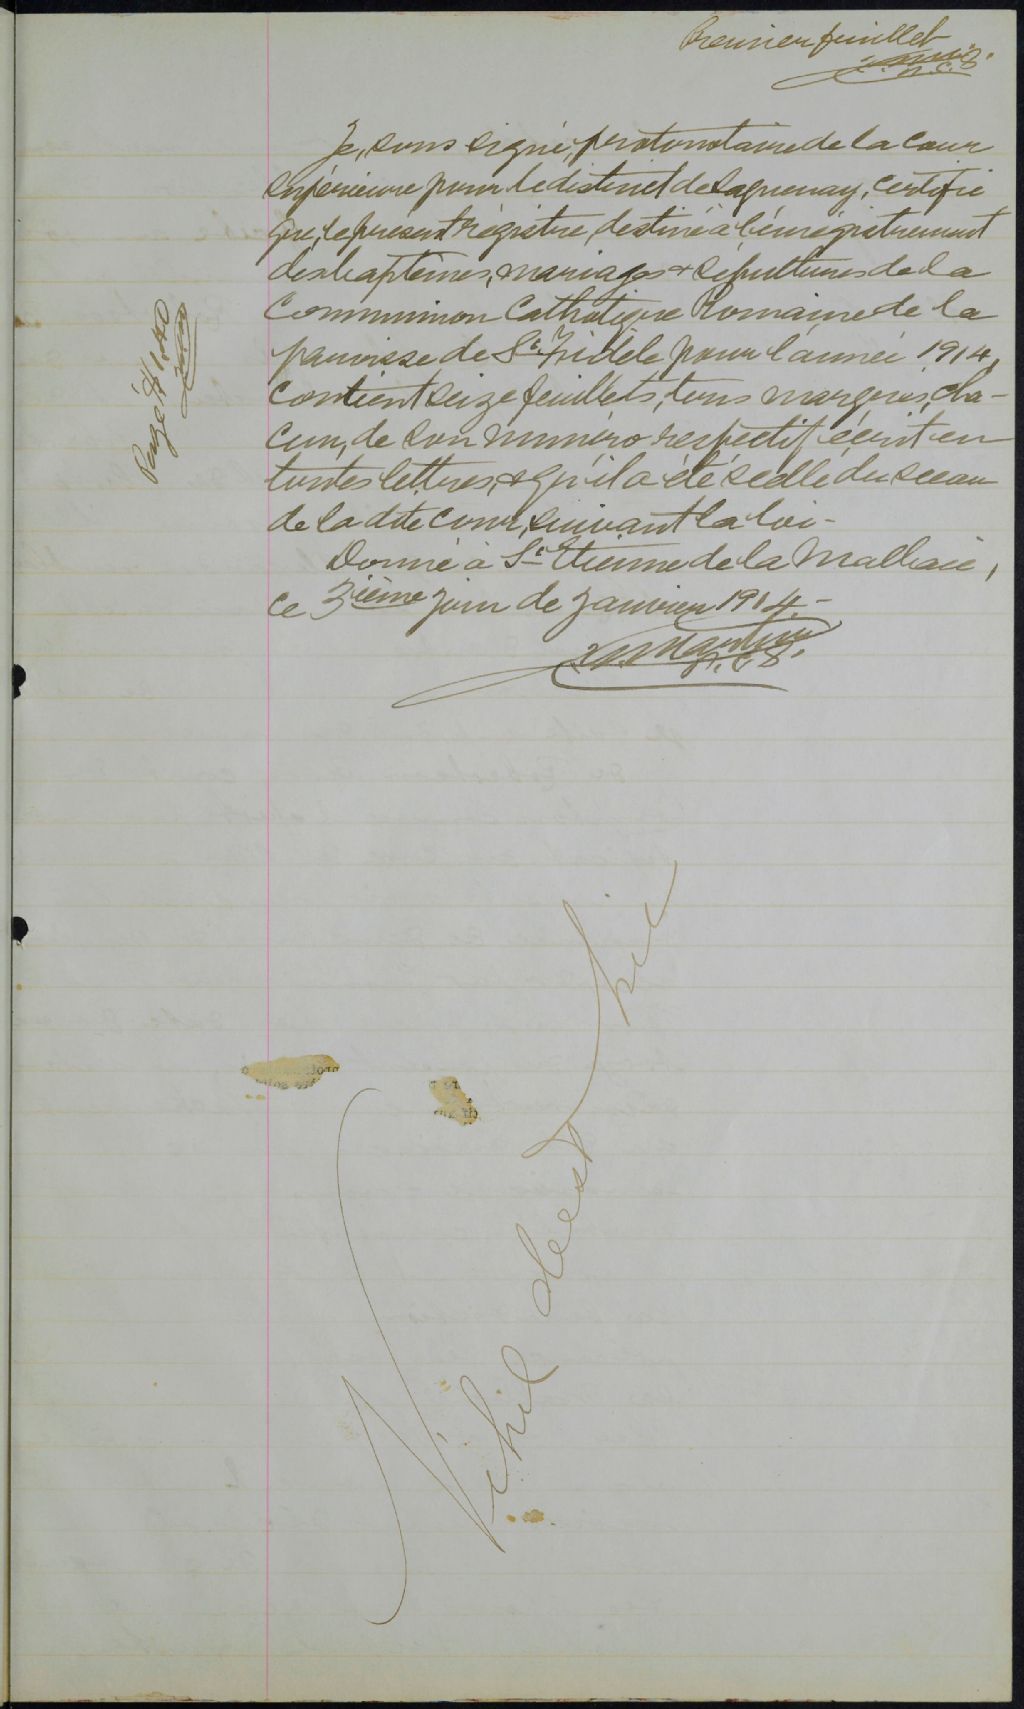 Premier feuillet
P.C.S.
Je, sous signé, protonotaire de la Cour
Supérieure pour le district de Saguenay, certifie
que, le présent régistre, destiné à l'énregistrement
des baptêmes, mariages & sépultures de la
Communion Catholique Romaine de la
paroisse de St. Fidèle pour l'année 1914,
contient seize feuillets, tous marqués, cha-
cun, de son numéro respectif écrit en
toutes lettres, & qu'il a été scellé du sceau
de la dite cour, suivant la loi -
Donné à St. Etienne de la Malbaie,
ce 3ième jour de Janvier 1914.-
P.C.S.
Payé $1.40
Nihil deest hic